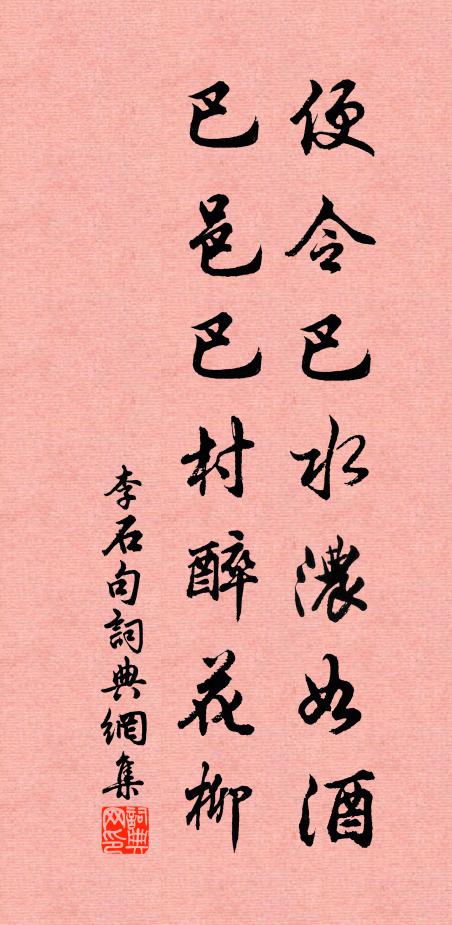 便令巴水濃如酒
巴邑巴村醉花柳
李石句詞典網集
詞典
网印